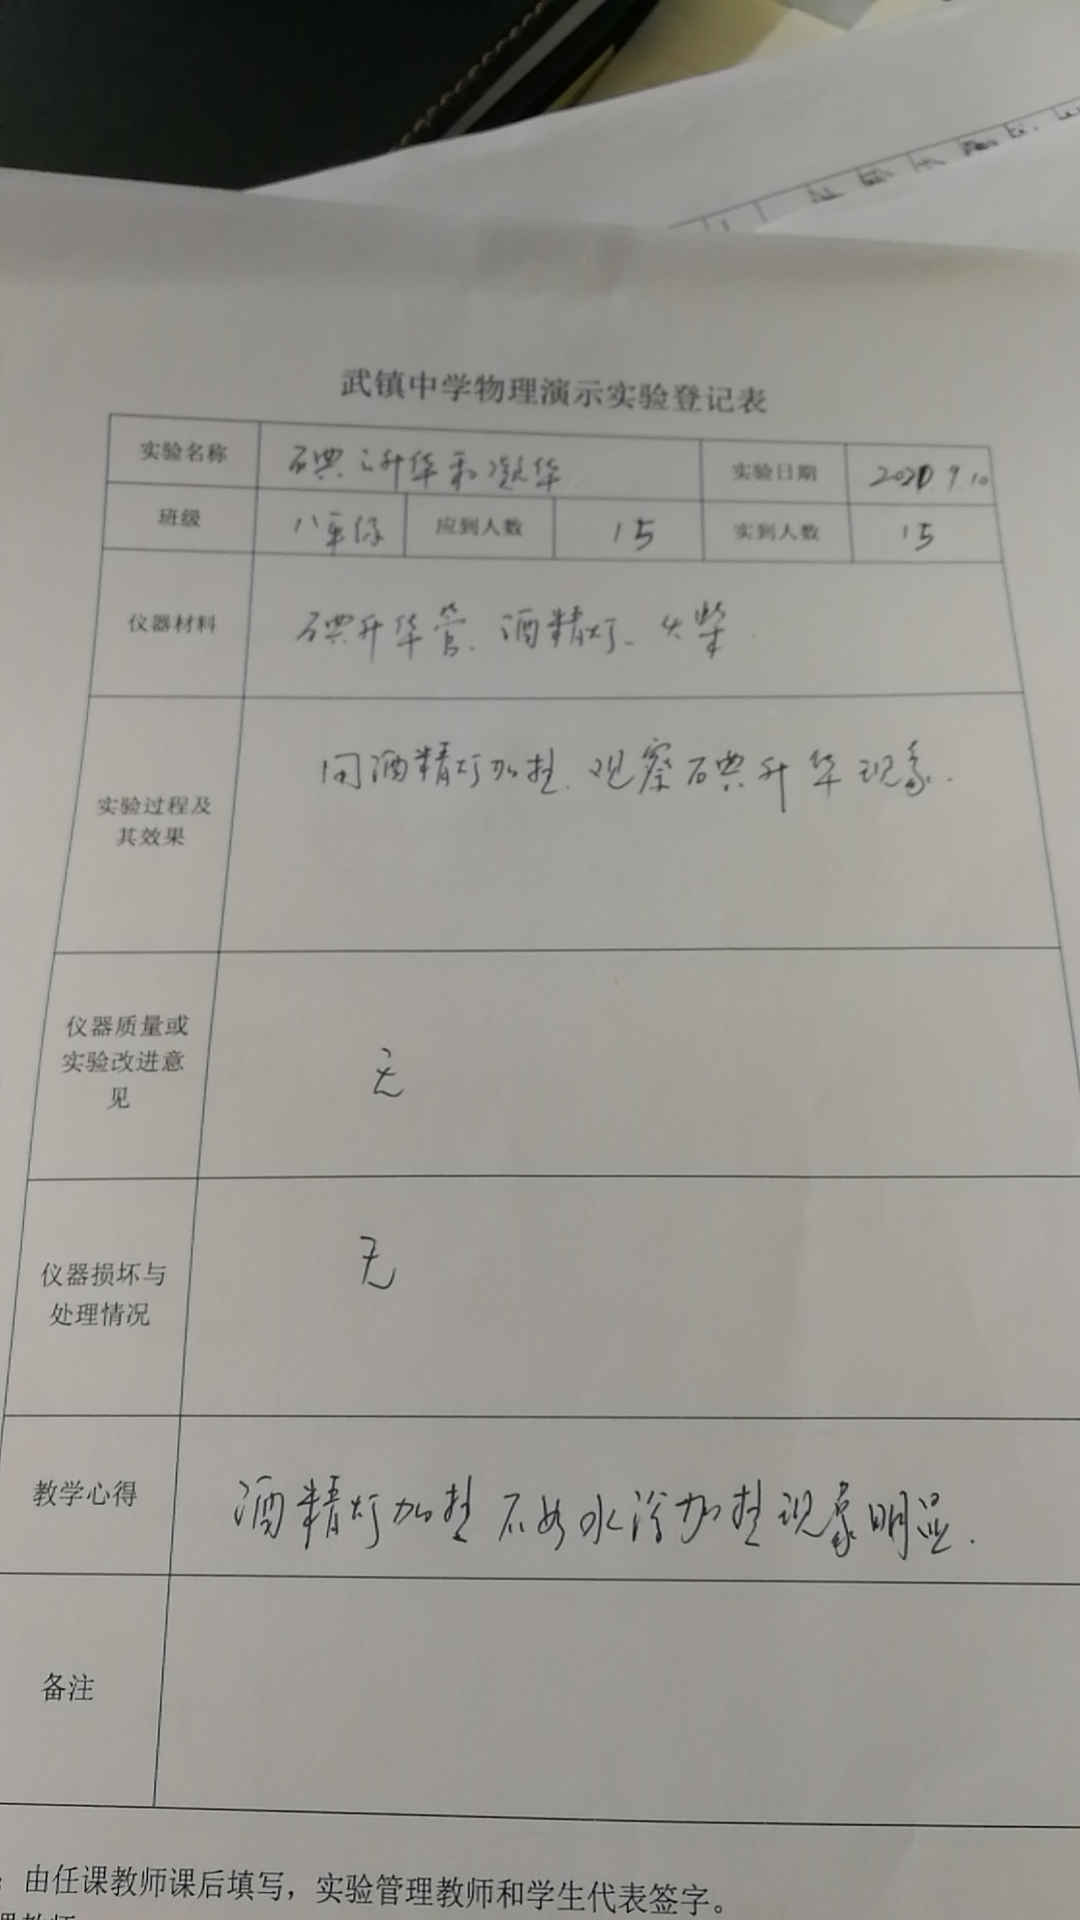 武镇中学物理演示实验登记表
实验名称 碘的升华和凝华 实验日期 9.10
班级 八年级 应到人数 15 实到人数 15
仪器材料 碘升华管、酒精灯、火柴.
实验过程及其效果 用酒精灯加热.观察碘升华现象.
仪器质量或实验改进意见 无
仪器损坏与处理情况 无
教学心得 酒精灯加热不如水浴加热现象明显.
备注
：由任课教师课后填写，实验管理教师和学生代表签字。